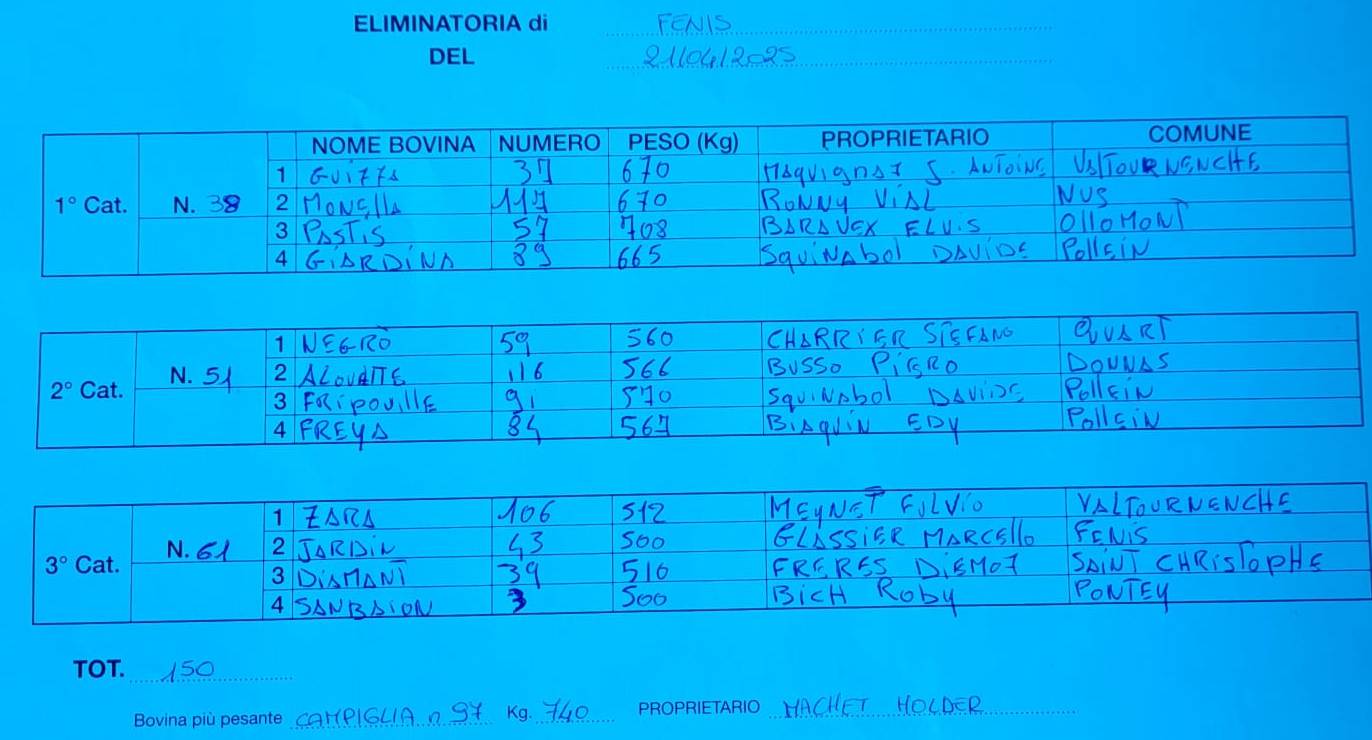 ELIMINATORIA di FENIS
DEL 21/04/2025
NOME BOVINA NUMERO PESO (Kg) PROPRIETARIO COMUNE
1° Cat. N. 38
1 GUIZZA 37 670 MAQUIGNAZ S. ANTOINE VALTOURNENCHE
2 MONELLA 117 670 RONNY VIAL NUS
3 PASTIS 57 708 BARAVEX ELVIS OLLOMONT
4 GIARDINA 89 665 SQUINABOL DAVIDE POLLEIN
2° Cat. N. 51
1 NEGRO 59 560 CHARRIER STEFANO QUART
2 ALOUATTE 116 566 BUSSO PIERO DONNAS
3 FRIPOUILLE 91 570 SQUINABOL DAVIDE POLLEIN
4 FREYA 84 567 BIAQUIN EDY POLLEIN
3° Cat. N. 61
1 ZARA 106 512 MEYNET FULVIO VALTOURNENCHE
2 JARDIN 43 500 GLASSIER MARCELLO FENIS
3 DIAMANT 39 510 FRERES DIEMOZ SAINT CHRISTOPHE
4 SANBAION 3 500 BICH ROBY PONTEY
TOT. 150
Bovina più pesante CAMPIGLIA n 97 Kg. 740 PROPRIETARIO MACHET HOLDER